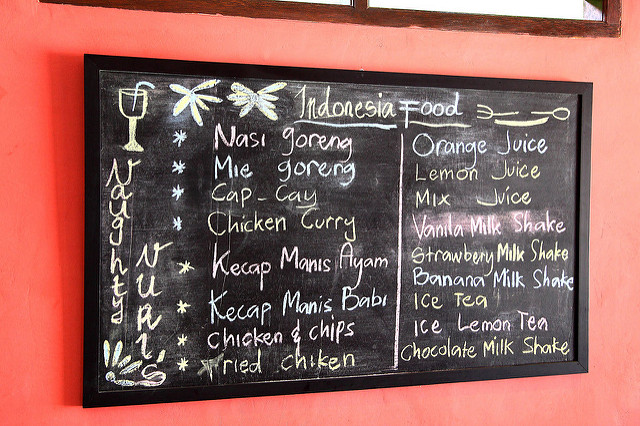 Indonesia Food
Naughty
Nuri's
Nasi goreng
Mie goreng
Cap-Cay
Chicken Curry
Kecap Manis Ayam
Kecap Manis Babi
chicken & chips
Fried chiken
Orange Juice
Lemon Juice
Mix Juice
Vanila Milk Shake
Strawbery Milk Shake
Banana Milk Shake
Ice Tea
Ice Lemon Tea
Chocolate Milk Shake